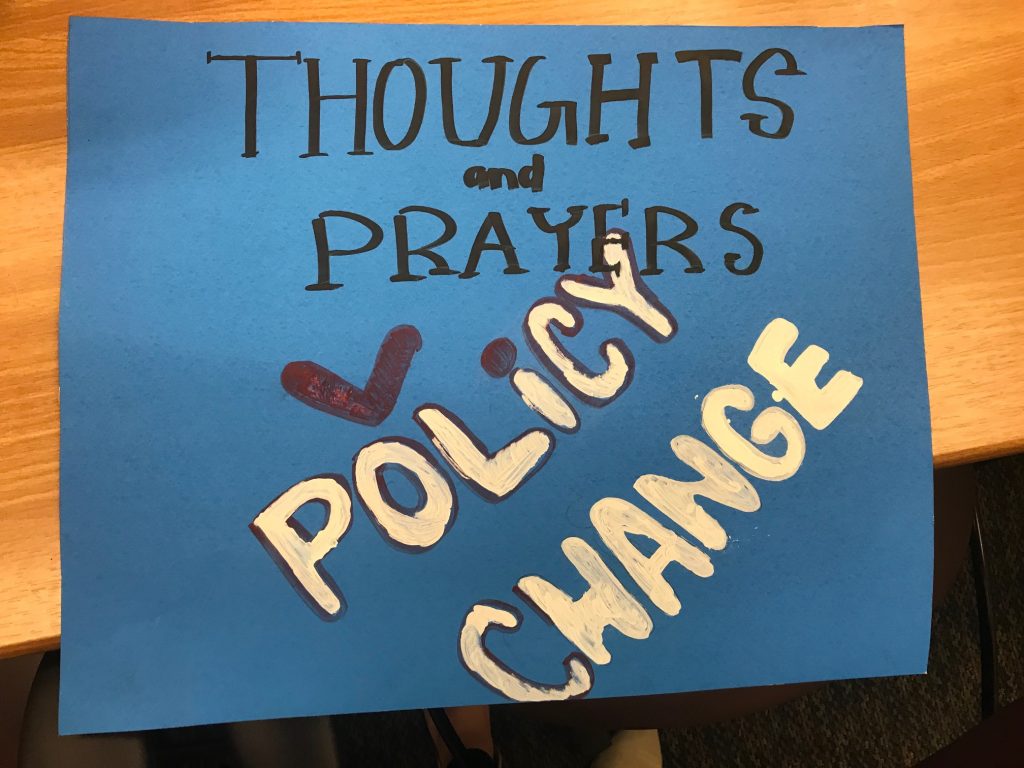 THOUGHTS
and
PRAYERS
POLiCY
CHANGE